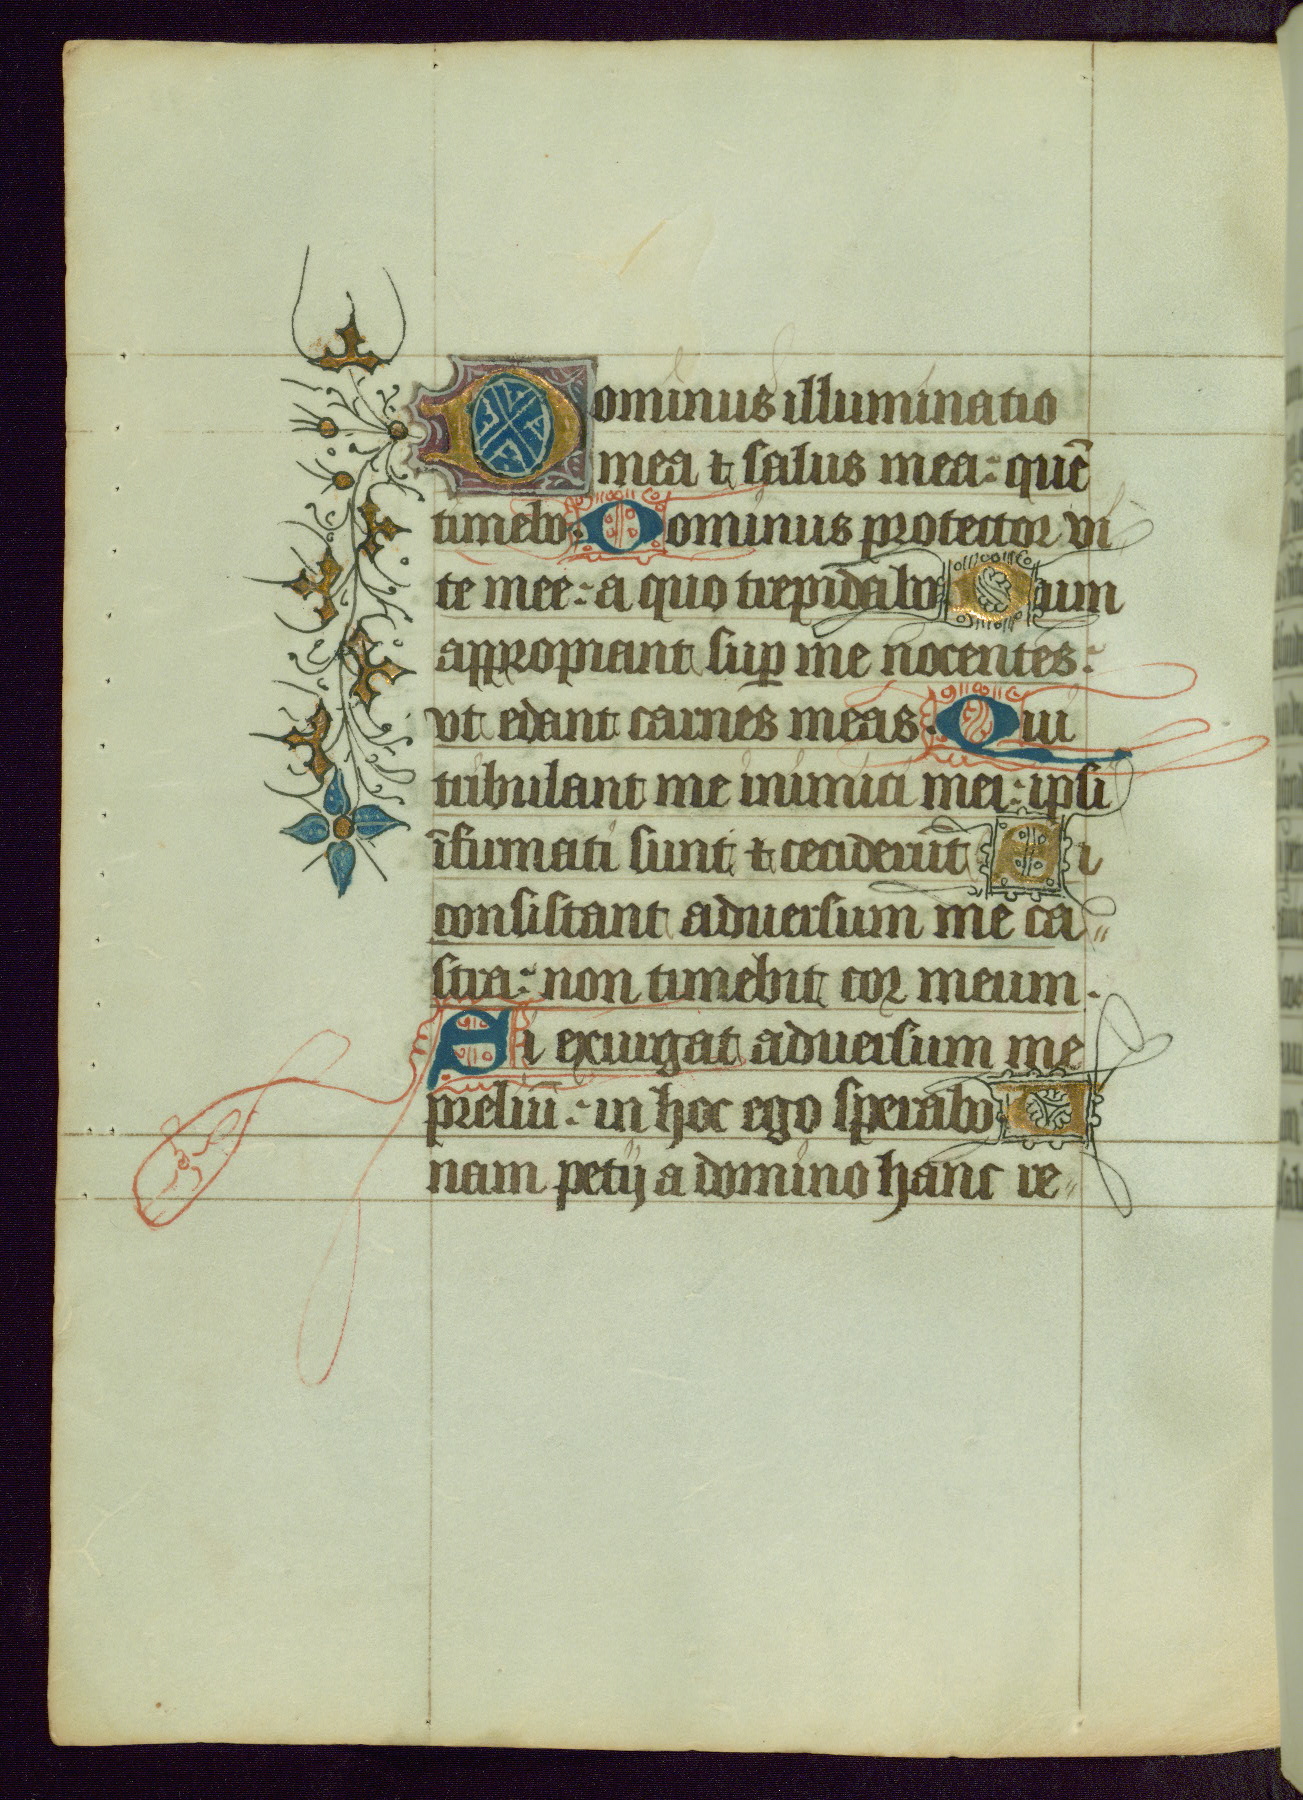 Dominus illuminatio
mea ⁊ salus mea: quē
timebo. Dominus protector vi
te mee: a quo trepidabo Dum
appropiant sup̱ me nocentes:
vt edant carnes meas. Qui
tribulant me inimici mei: ipsi
īfirmati sunt ⁊ ceciderūt Si
consistant aduersum me ca〃
stra: non timebit cor meum.
Si exurgat aduersum me
preliū: in hoc ego sperabo U
nam petij a domino hanc re〃